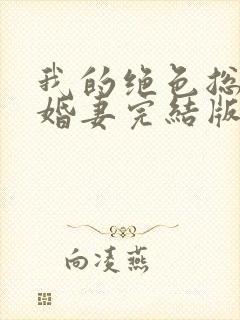 我的绝色总
婚妻完结版
向凌燕